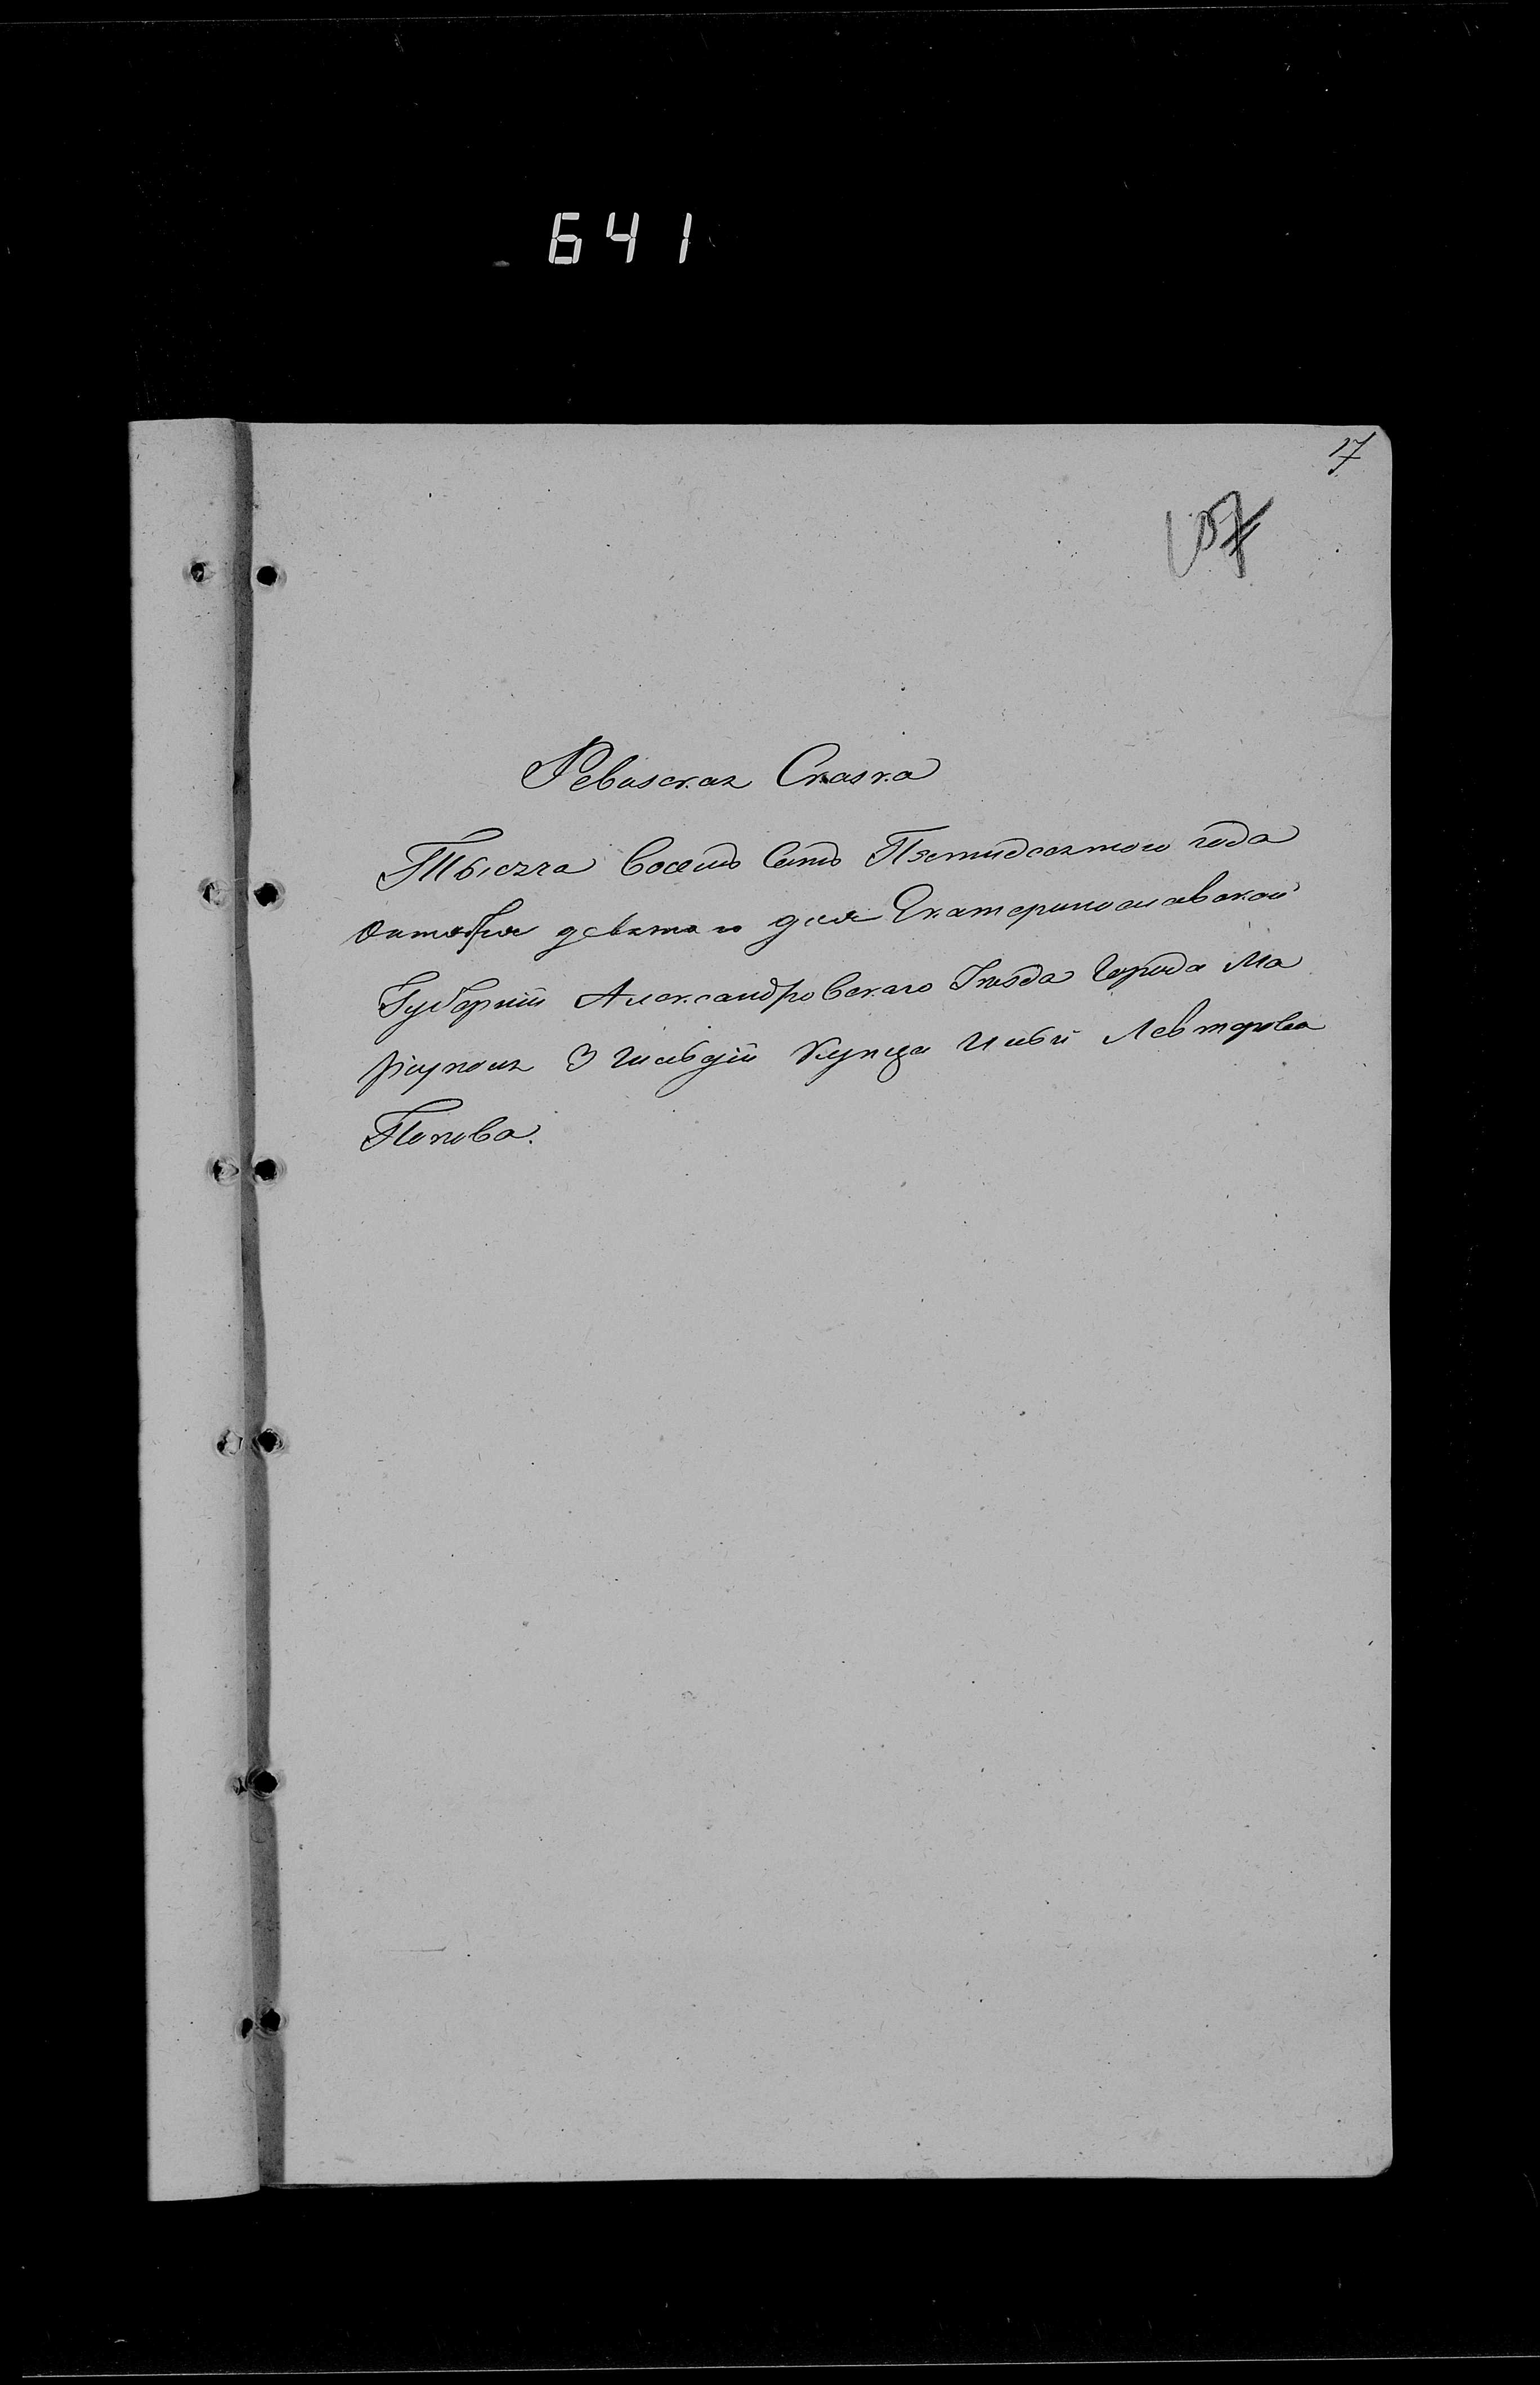 641
17
107
Ревизская Сказка
Тысяча восемь Сотъ Пятидесятого года
Октября девятаго дня Екатеринославской
Губерніи Александровскаго Уезда Города Ма
риуполя 3 Гильдіи Купца Ильи Левтерова
Попова.